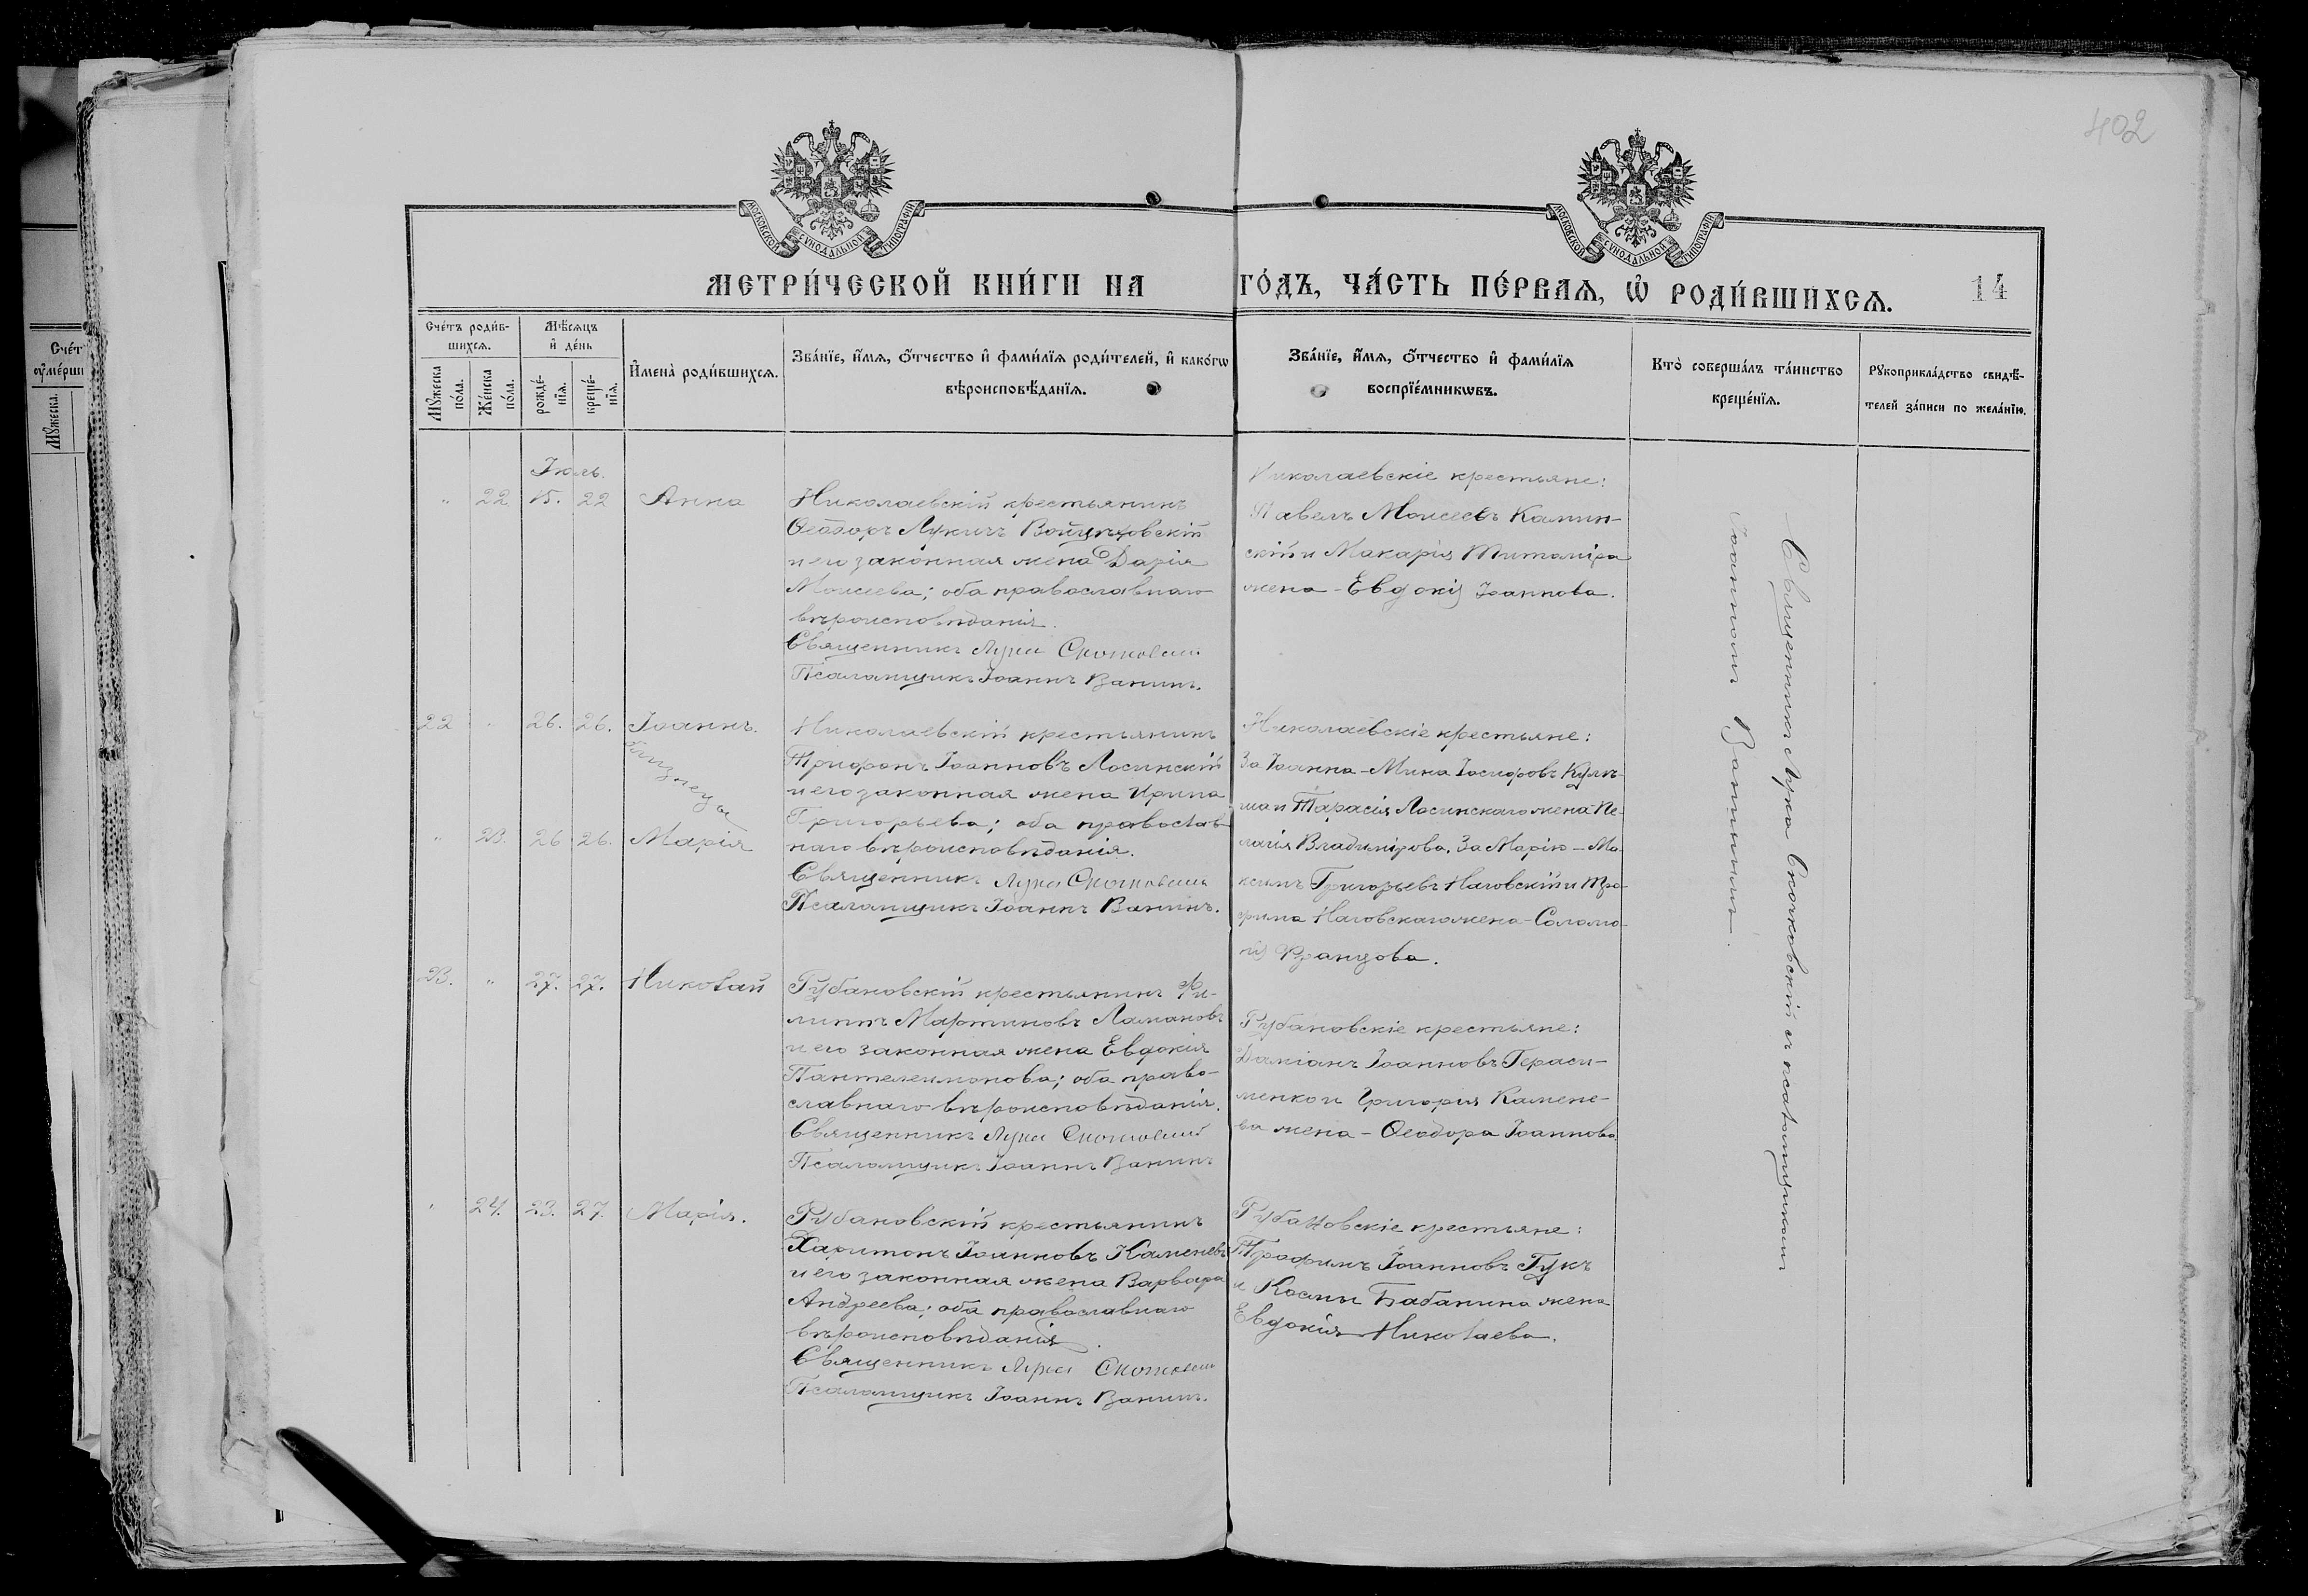 402
МОСКОВСКОЙ СУНОДАЛЬНОЙ ТИПОГРАФІИ
МОСКОВСКОЙ СУНОДАЛЬНОЙ ТИПОГРАФІИ
МЕТРИ́ЧЕСКОЙ КНИ́ГИ НА ГО́ДЪ, ЧА́СТЬ ПЕ́РВАѦ, Ѡ҆ РОДИ́ВШИХСѦ. 14
Сче́тъ роди́в-
шихсѧ.
Мꙋ́жеска по́ла.
Же́нска по́ла.
Мѣ́сѧцъ
и҆ де́нь
рожде́-
нїѧ.
креще́-
нїѧ.
И҆мена̀ роди́вшихсѧ.
Зва́нїе, и҆́мѧ, ѻ҆́тчество и҆ фами́лїѧ роди́телей, и҆ како́гѡ
вѣроисповѣ́данїѧ.
Зва́нїе, и҆́мѧ, ѻ҆́тчество и҆ фами́лїѧ
воспрїе́мникѡвъ.
Кто̀ соверша́лъ та́инство
креще́нїѧ.
Рꙋкоприкла́дство свидѣ́-
телей за́писи по жела́нїю.
Сче́т
ᲂу҆ме́рши
Мꙋ́жеска.
Іюль.
" 22 15. 22 Анна
Николаевскій крестьянинъ
Ѳеодоръ Лукичъ Войцѣховскій
и его законная жена Дарія
Моисеева; оба православнаго
вѣроисповѣданія.
Священникъ Лука Скочковскій
Псаломщикъ Іоаннъ Ванинъ.
Николаевскіе крестьяне:
Павелъ Моисеевъ Камин-
скій и Макарія
жена - Евдокія Іоаннова.
22 " 26. 26. Іоаннъ.
близнецы
" 23. 26 26. Марія
Николаевскій крестьянинъ
Трифонъ Іоанновъ Лосинскій
и его законная жена Ирина
Григорьева; оба православ-
наго вѣроисповѣданія.
Священникъ Лука Скочковскій
Псаломщикъ Іоаннъ Ванинъ.
Николаевскіе крестьяне:
За Іоанна - Мина Іосифовъ
и Тарасія Лосинскаго жена - Пе-
лагія Владимірова. За Марію - Ма-
ксимъ Григорьевъ Наговскій и Тро-
фима Наговскаго жена - Соломо-
нія Францова.
23. " 27. 27. Николай
Рубановскій крестьянинъ Фи-
липпъ Мартиновъ Ламановъ
и его законная жена Евдокія
Пантелеимонова; оба право-
славнаго вѣроисповѣданія.
Священникъ Лука Скочковскій
Псаломщикъ Іоаннъ Ванинъ
Рубановскіе крестьяне:
Даміанъ Іоанновъ Гераси-
менко и Григорія Камене-
ва жена - Ѳеодора Іоаннова.
" 24. 23. 27. Марія.
Рубановскій крестьянинъ
Харитонъ Іоанновъ Каменевъ
и его законная жена Варвара
Андреева; оба православнаго
вѣроисповѣданія.
Священникъ Лука Скочковскій
Псаломщикъ Іоаннъ Ванинъ.
Рубановскіе крестьяне:
Трофимъ Іоанновъ Гукъ
и Космы Бабанина жена
Евдокія Николаева.
Священникъ Лука Скочковскій съ псаломщикомъ
Іоанномъ Ванинымъ.